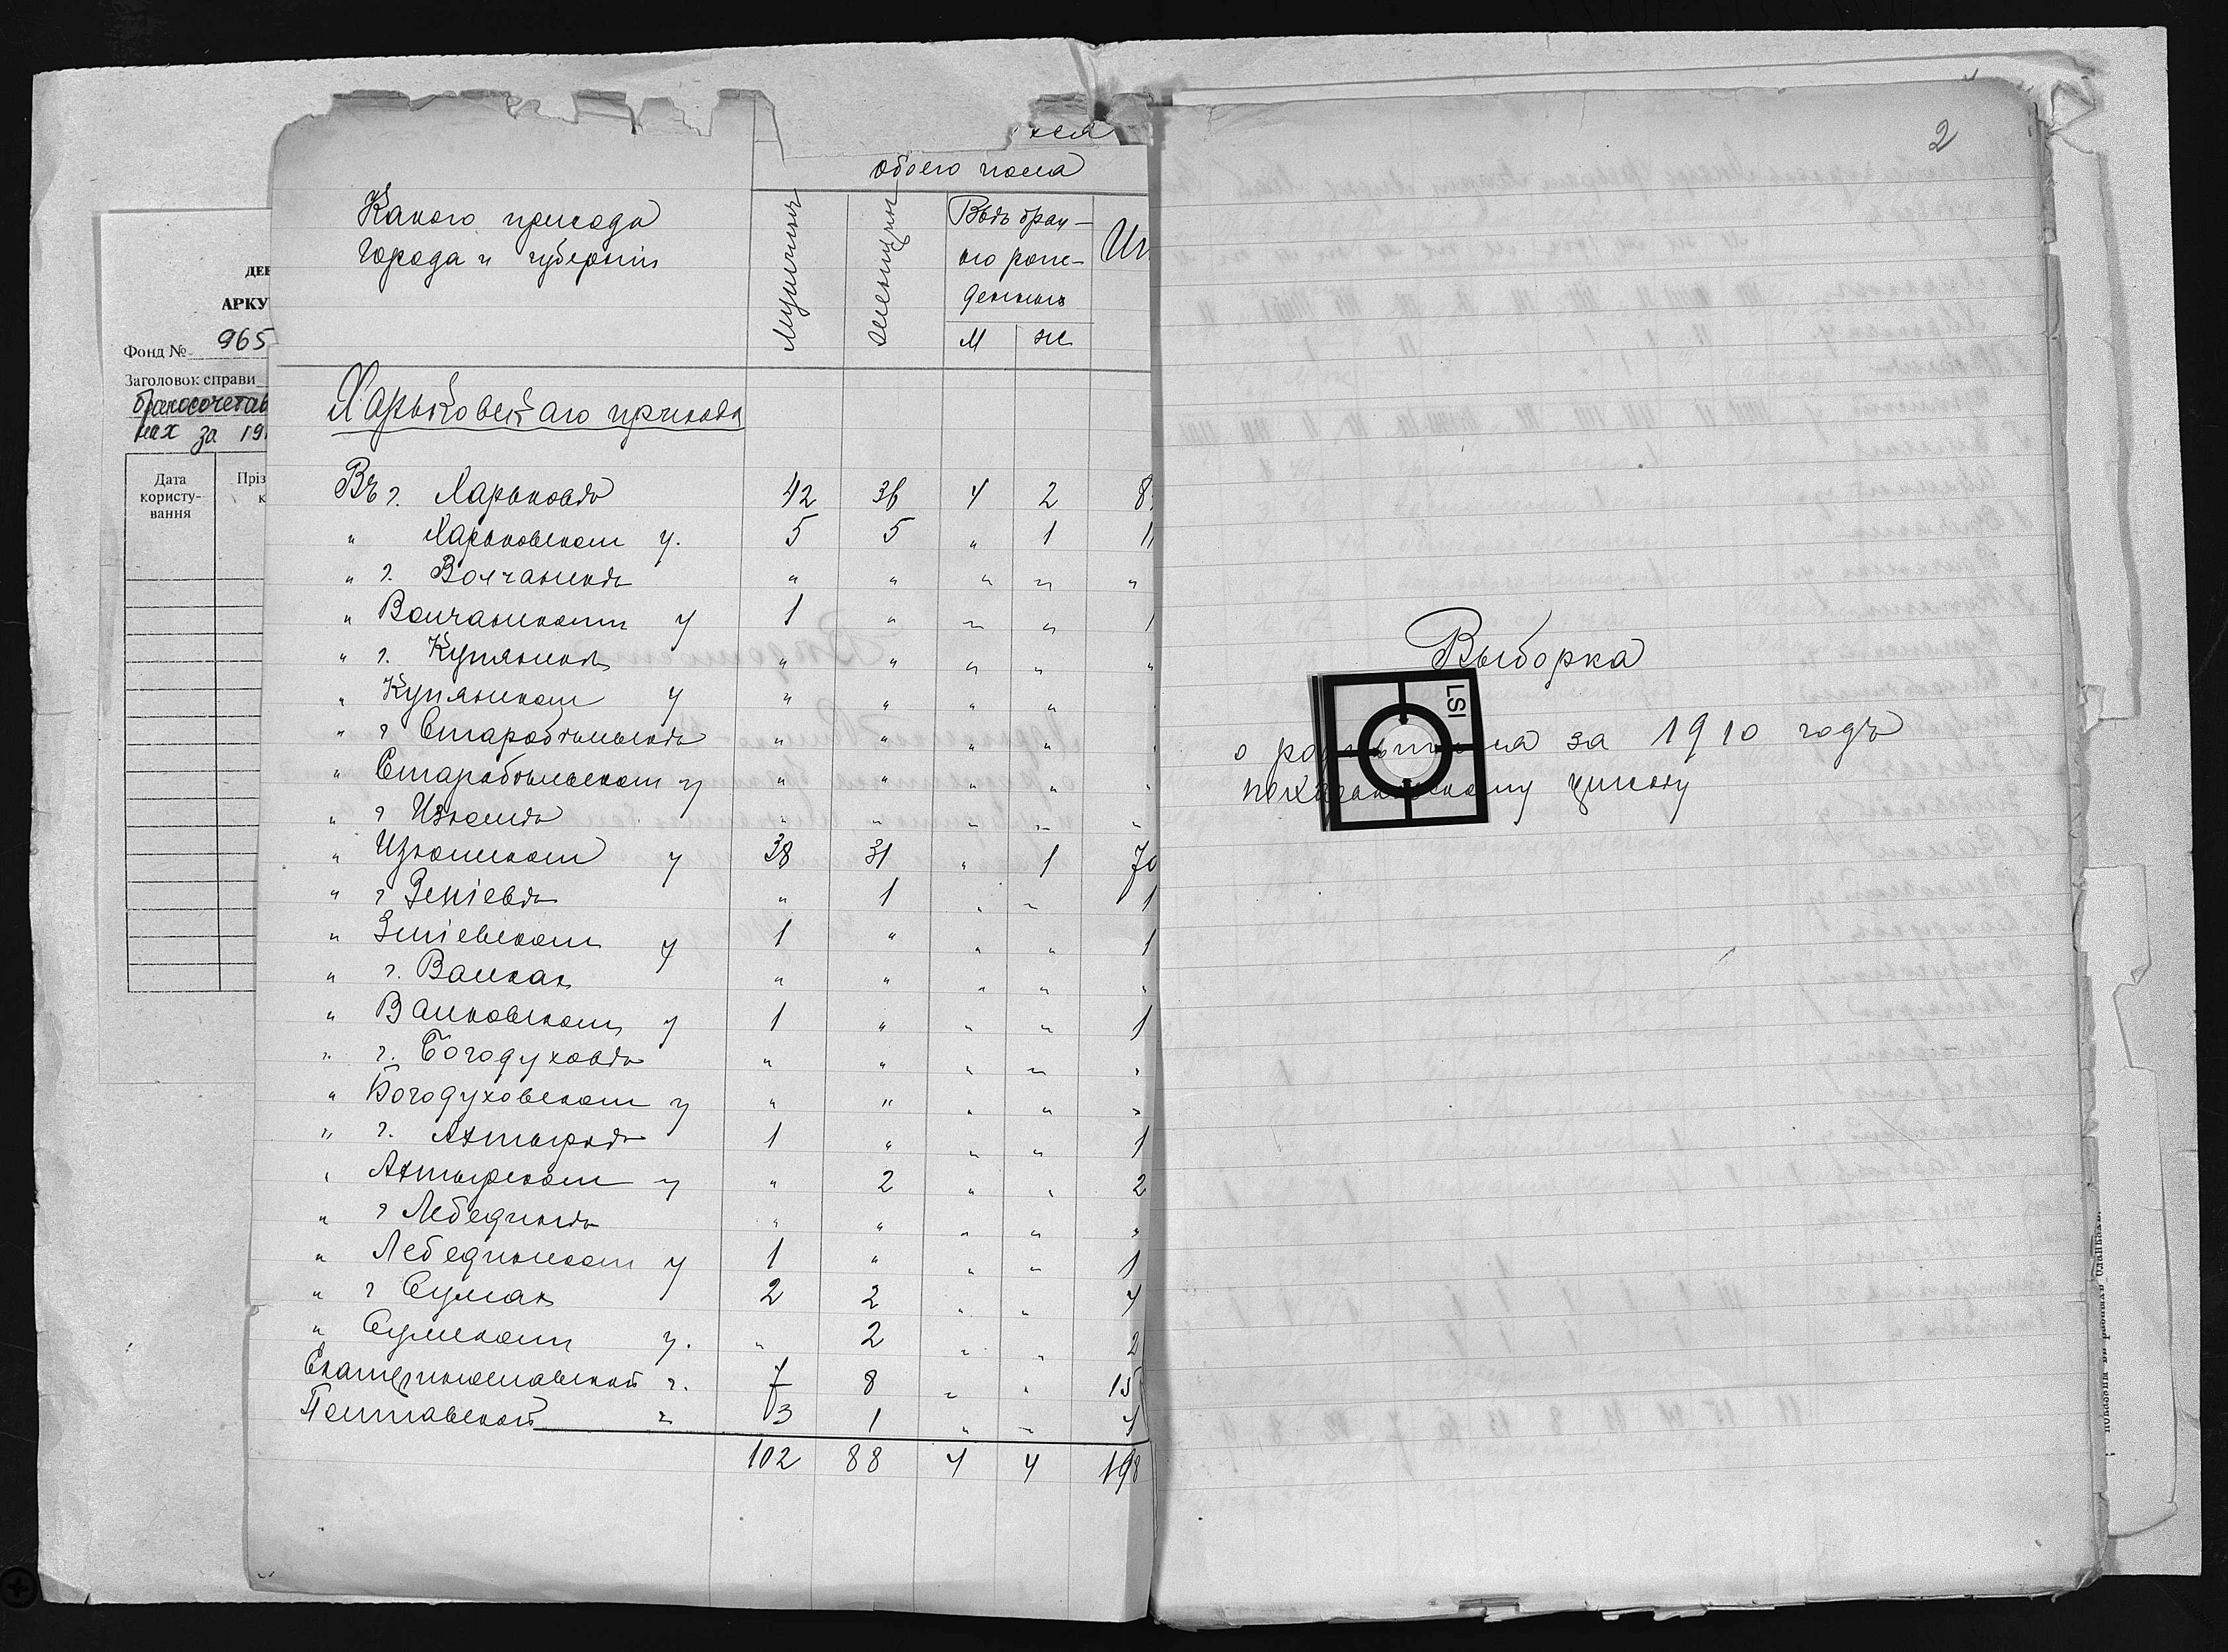 ДЕ
АРКУ
Фонд № 965
Заголовок справи
бракосочетав
нах за 19
Дата користу-вання
Пріз
к
обоего пола
Какого прихода
города и губернiи
Мущины
Женщины
Внѣ брач-
но рож-
денные
Ит
М Ж
Харьковскаго прихода
Въ г. Харьковѣ 42 36 4 2 8
" Харьковскомъ у. 5 5 " 1 11
" г. Волчанскѣ " " " " "
" Волчанскомъ у 1 " " " 1
" г. Купянскѣ " " " " "
" Купянскомъ у " " " "
" г Старобѣльскѣ " " " "
" Старобѣльскомъ у " " " " "
" г Изюмѣ " " " " "
" Изюмскомъ у 38 31 " 1 70
" г Зміевѣ " 1 " " 1
" Зміевскомъ у 1 " " " 1
" г. Валкахъ " " " " "
" Валковскомъ у 1 " " " 1
" г. Богодуховѣ " " " " "
" Богодуховскомъ у " " " " "
" г. Ахтыркѣ 1 " " " 1
" Ахтырскомъ у " 2 " " 2
" г Лебединѣ " " " " "
" Лебединскомъ у 1 " " " 1
" г Сумахъ 2 2 " " 4
" Сумскомъ у. " 2 " " 2
Екатеринославской г. 7 8 " " 15
Полтавской " 3 1 " " 4
102 88 4 4 198
2
Выборка
за 1910 годъ
LSI